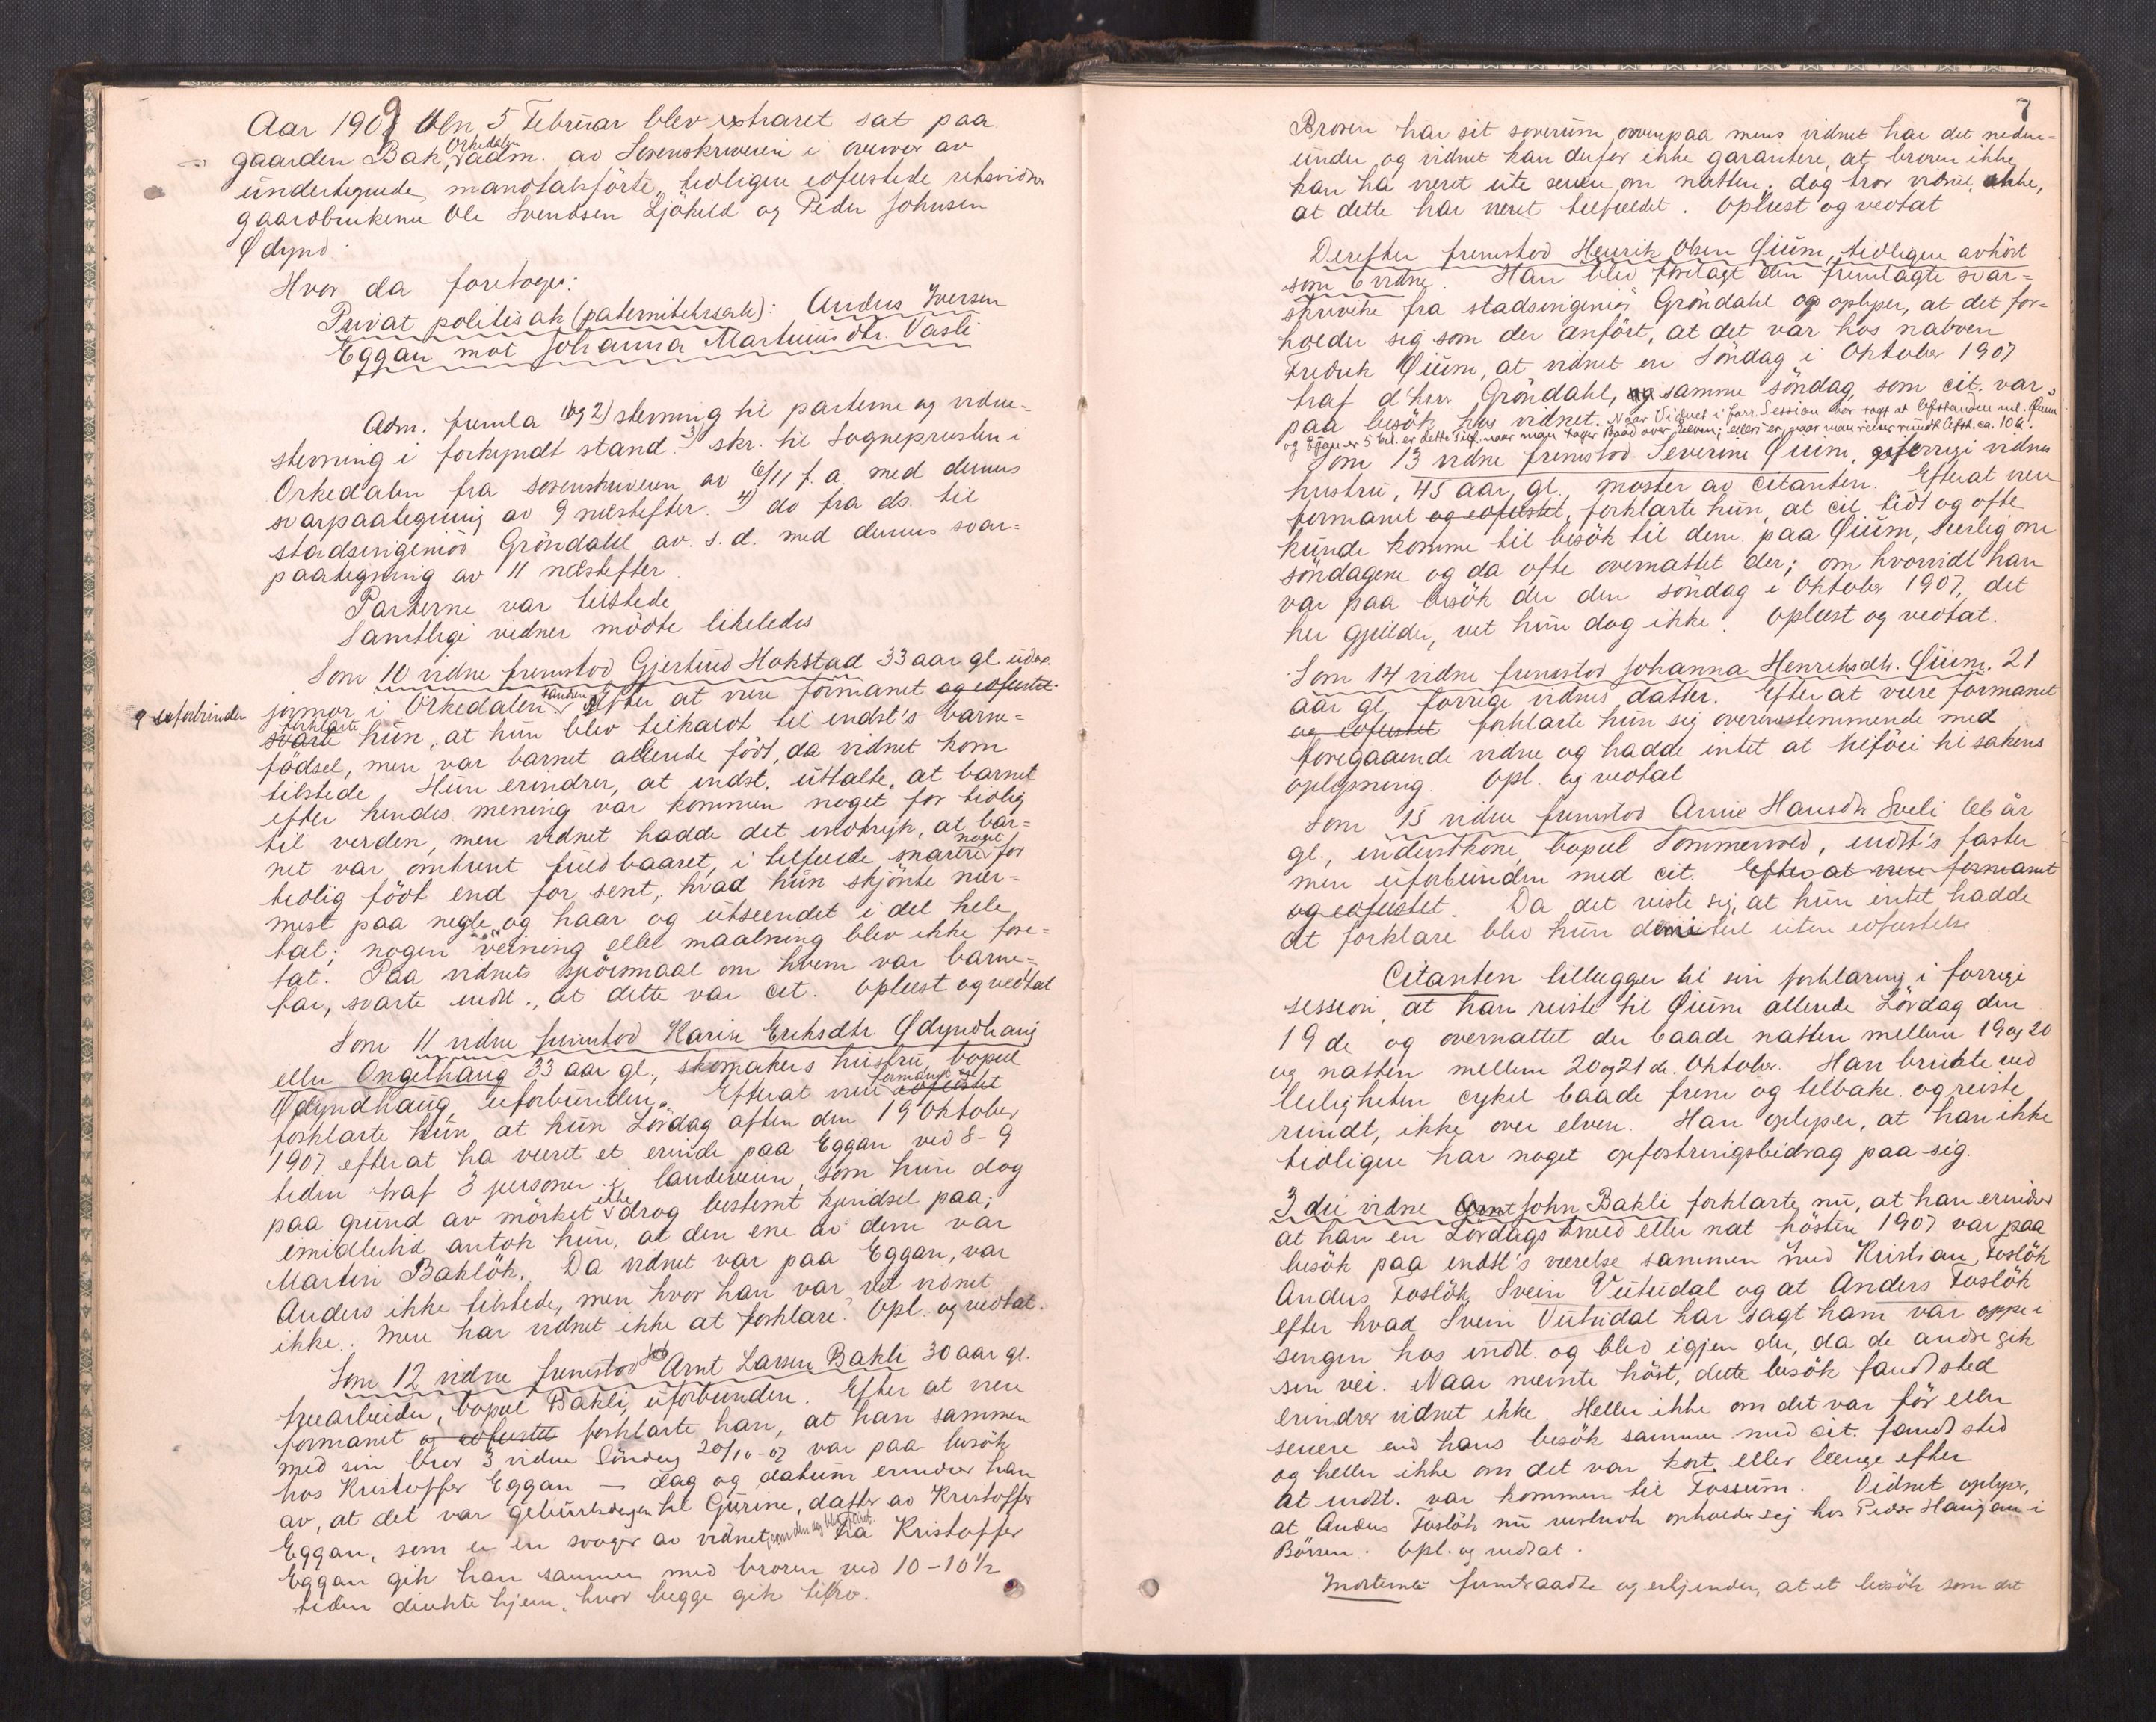 Aar 1909 den 5 Februar blev extraret sat paa
gaarden Bak, Orkedalen, adm. av Sorenskriveren i overvær av
undertegnede mandtalsförte, tidligere edfæstede retsvidner
gaardbrukerne Ole Svendsen Ljökild og Peder Johnsen
Ödynd.
Hvor da foretoges:
Privat politisak (paternitetssak): Anders Iversen
Eggan mot Johanna Martinusdtr. Vasli
Adm. fremla 1 og 2) stevning til parterne og vidne-
stevning i forkyndt stand. 3) skr. til Sognepresten i
Orkedalen fra sorenskriveren av 6/11 f. a. med dennes
svarpaategning av 9 næstefter. 4) do fra ds. til
stadsingeniör Gröndahl av s. d. med dennes svar-
paategning av 11 næstefter
Parterne var tilstede
Samtlige vidner mödte likeledes
Som 10 vidne fremstod Gjertrud Hokstad 33 aar gl
jormor i Orkedalen. Efter at være formanet og edfæstet
uforbunden
svarte forklarte hun, at hun blev tilkaldt til indst's barne-
födsel, men var barnet allerede födt, da vidnet kom
tilstede. Hun erindrer, at indst. uttalte, at barnet
efter hendes mening var kommen noget for tidlig
til verden, men vidnet hadde det indtryk, at bar-
net var omtrent fuldbaaret, i tilfælde snarere noget for
tidlig födt end for sent, hvad hun skjönte nær-
mest paa negle og haar og utseendet i det hele
tat; nogen veining eller maalning blev ikke fore-
tat. Paa vidnets spörsmaal om hvem var barne-
far, svarte indst., at dette var cit. Oplæst og vedtat
Som 11 vidne fremstod Karen Eriksdtr. Ödyndhaug
eller Ongelhaug 33 aar gl., skomakers hustru, bopæl
Ödyndhaug, uforbunden. Efterat være formanet edfæstet
forklarte hun, at hun Lördag aften den 19 Oktober
1907 efterat ha været et erinde paa Eggan ved 8-9
tiden traf 3 personer i landeveien, som hun dog
paa grund av mörket ikke drog bestemt kjendsel paa;
imidlertid antok hun, at den ene av dem var
Martin Baklök. Da vidnet var paa Eggan, var
Anders ikke tilstede, men hvor han var vet vidnet
ikke. Mere har vidnet ikke at forklare. Opl. og vedtat.
Som 12 vidne fremstod Arnt Larsen Bakli 30 aar gl.
træarbeider, bopæl Bakli, uforbunden. Efter at være
formanet og edfæstet forklarte han, at han sammen
med sin bror 3 vidne Söndag 20/10-07 var paa besök
hos Kristoffer Eggan – dag og datum erindrer han
av, at det var geburtsdagen til Gurine, datter av Kristoffer
Eggan, som er en svoger av vidnet, som den dag blev feiret. Fra Kristoffer
Eggan gik han sammen med broren ved 10-10½
tiden direkte hjem, hvor begge gik tilro.
7
Broren har sit soverum ovenpaa mens vidnet har det neden-
under og vidnet kan derfor ikke garantere, at broren ikke
kan ha været ute senere om natten; dog tror vidnet ikke,
at dette har været tilfældet. Oplæst og vedtat
Derefter fremstod Henrik Olsen Öium, tidligere avhört
som 6 vidne. Han blev forelagt den fremlagte svar-
skrivelse fra stadsingeniör Gröndahl og oplyser, at det for-
holder sig som der anfört, at det var hos naboen
Fredrik Öium, at vidnet en Söndag i Oktober 1907
traf d'hrr Gröndahl, og samme söndag, som cit. var
paa besök hos vidnet. Naar Vidnet i forr. Session har sagt at Afstanden ml. Öium
og Eggan er 5 kil. er dette Tilf. naar man tager Baad over elven; ellers er, naar man reiser rundt Afst. ca. 10 k.
Som 13 vidne fremstod Severine Öium, forrige vidnes
hustru, 45 aar gl., moster av citanten. Efterat være
formanet og edfæstet, forklarte hun, at cit. tidt og ofte
kunde komme til besök til dem paa Öium, særlig om
söndagene og da ofte overnattet der; om hvorvidt han
var paa besök der den söndag i Oktober 1907, det
her gjælder, vet hun dog ikke. Oplæst og vedtat.
Som 14 vidne fremstod Johanna Henriksdtr. Öium, 21
aar gl. forrige vidnes datter. Efter at være formanet
og edfæstet forklarte hun sig overensstemmende med
foregaaende vidne og hadde intet at tilföie til sakens
oplysning. Opl. og vedtat
Som 15 vidne fremstod Anne Hansdtr Sveli 66 år
gl., inderstkone, bopæl Sommervold, indst's faster
men uforbunden med cit. Efter at være formanet
og edfæstet. Da det viste sig, at hun intet hadde
at forklare blev hun dimitteret uten edfæstelse
Citanten tillægger til sin forklaring i forrige
session, at han reiste til Öium allerede Lördag den
19de og overnattet der baade natten mellem 19 og 20
og natten mellem 20 og 21 de. Oktober. Han brukte ved
leiligheten cykel baade frem og tilbake og reiste
rundt, ikke over elven. Han oplyser, at han ikke
tidligere har noget opfostringsbidrag paa sig.
3die vidne Arnt John Bakli forklarte nu, at han erindrer
at han en Lördags kveld eller nat hösten 1907 var paa
besök paa indst's værelse sammen med Kristian Foslök
Anders Foslök, Svein Vutudal og at Anders Foslök
efter hvad Svein Vutudal har sagt ham var oppe i
sengen hos indst. og blev igjen der, da de andre gik
sin vei. Naar nævnte höst, dette besök fandt sted
erindrer vidnet ikke. Heller ikke om det var för eller
senere end hans besök sammen med cit. fandt sted
og heller ikke om det var kort eller længe efter
at indst. var kommen til Fossum. Vidnet oplyser,
at Anders Foslök nu opholder sig hos Peder Haugan i
Börsen. Opl. og vedtat.
Indstevnte fremtraadte og erkjender, at et besök som det